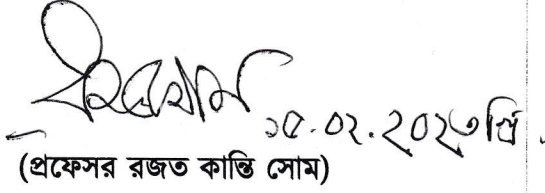 ১৫.০২.২০২৩ খ্রি.
(প্রফেসর রজত কান্তি সোম)